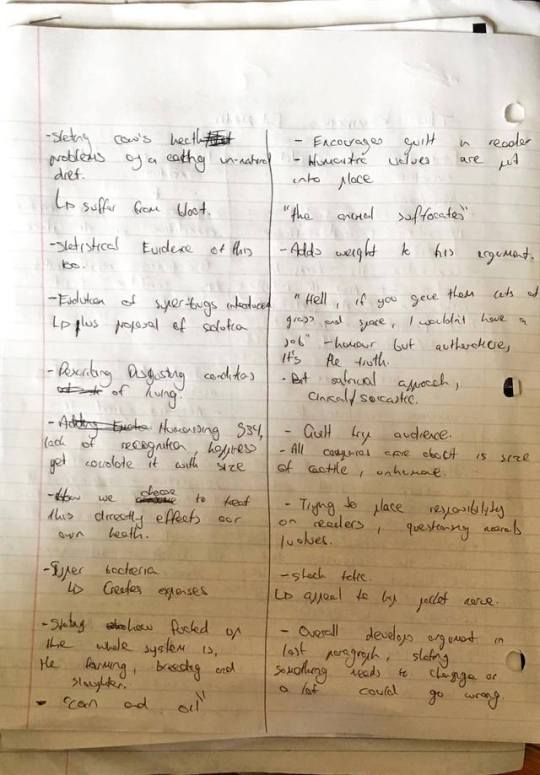 -Stating cow's health
problems of a eating un-natural
diet.
↳ suffer from bloat.
-Statistical Evidence of this
too.
-Evolution of superbugs introduced
↳ plus proposal of solution
-Describing Disgusting conditions
of living.
- Humanising 534,
lack of recognition,
get correlate it with size
-How we to treat
this directly effects our
own health.
-Super bacteria
↳ Creates expenses
-Stating how fucked up
the whole system is,
the farming, breeding and
slaughter.
- "Scam and oil"
- Encourages guilt in reader
- Humanistic values are put
into place
"The animal suffocates"
-Adds weight to his argument.
"Hell, if you gave them lots of
grass and space, I wouldn't have a
job" -humour but authenticates,
it's the truth.
- But satirical approach,
cinical/sarcastic.
- Guilt trip audience.
- All companies care about is size
of cattle, inhumane.
- Trying to place responsibility
on readers, questioning morals
/values.
-Shock tactic.
↳ appeal to hip pocket nerve.
- Overall develops argument in
last paragraph, stating
something needs to change or
a lot could go wrong.